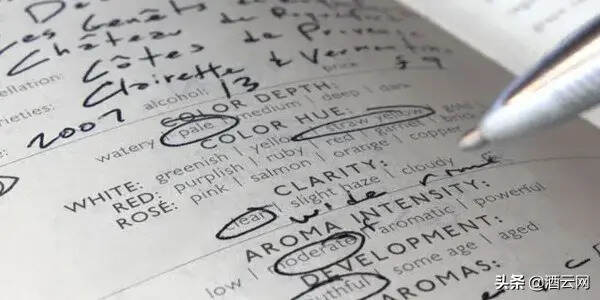 Château de Roquefort
Côtes de Provence
ellation: Clairette & Vermentino
rieties: 2007 alcohol: 13 price $ 9
COLOR DEPTH:
watery | pale | medium | deep | dark
COLOR HUE:
WHITE: greenish | yellow | straw yellow | gold
RED: purplish | ruby | red | garnet | brick
ROSÉ: pink | salmon | orange | copper
CLARITY:
clear | slight haze | cloudy
wide rim
AROMA INTENSITY:
low | moderate | aromatic | powerful
DEVELOPMENT:
youthful | some age | aged
AROMAS:
头条 @酒云网